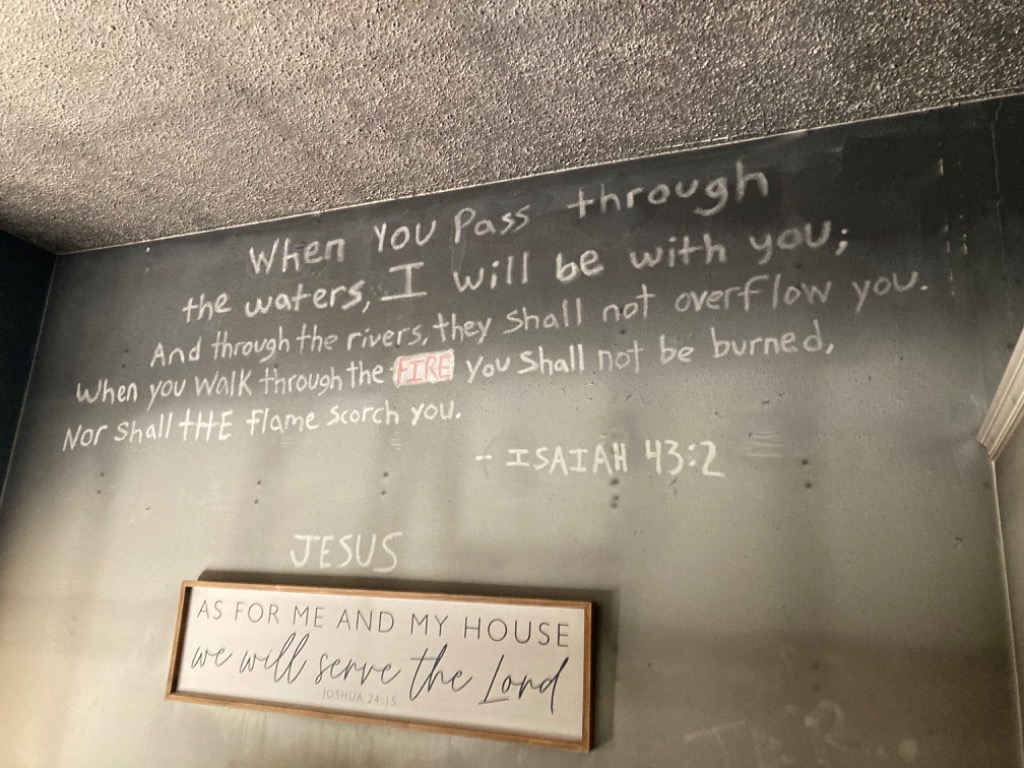 When You Pass through
the waters, I will be with you;
And through the rivers, they shall not overflow you.
When you WALK through the FIRE you shall not be burned,
Nor shall tHE flame scorch you.
- ISAIAH 43:2
JESUS
AS FOR ME AND MY HOUSE
we will serve the Lord
JOSHUA 24:15